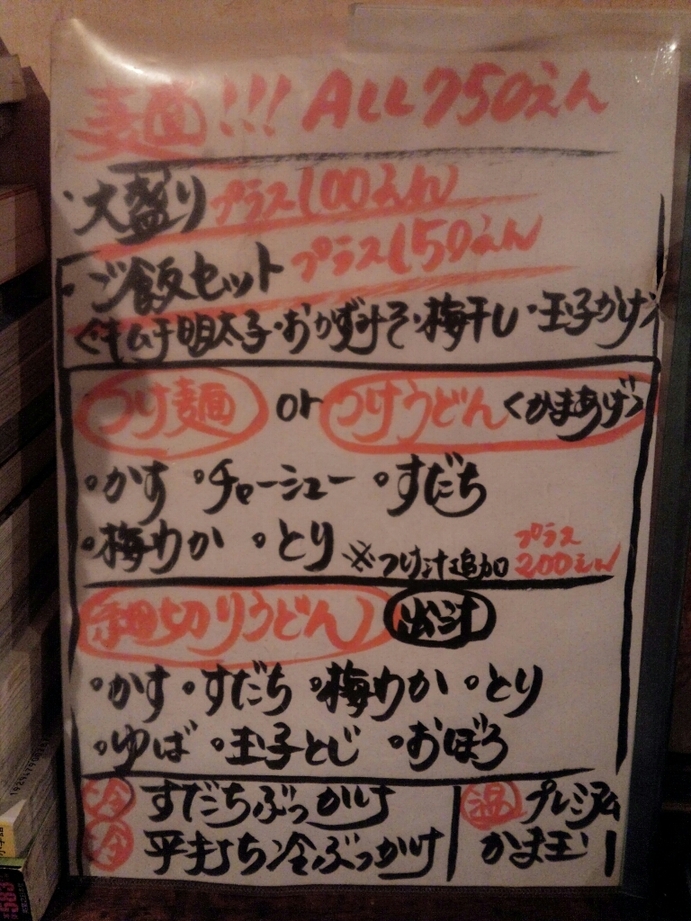 麺!!! ALL750えん
・大盛り プラス100えん
・ご飯セット プラス150えん
<キムチ・明太子・おかずみそ・梅干し・玉子かけ>
つけ麺 or つけうどん<かまあげ>
・かす ・チャーシュー ・すだち
・梅わか ・とり ※つけ汁追加 プラス200えん
細切りうどん 出汁
・かす ・すだち ・梅わか ・とり
・ゆば ・玉子とじ ・おぼろ
冷 すだちぶっかけ
冷 平打ち冷ぶっかけ
温 プレミアム
かま玉